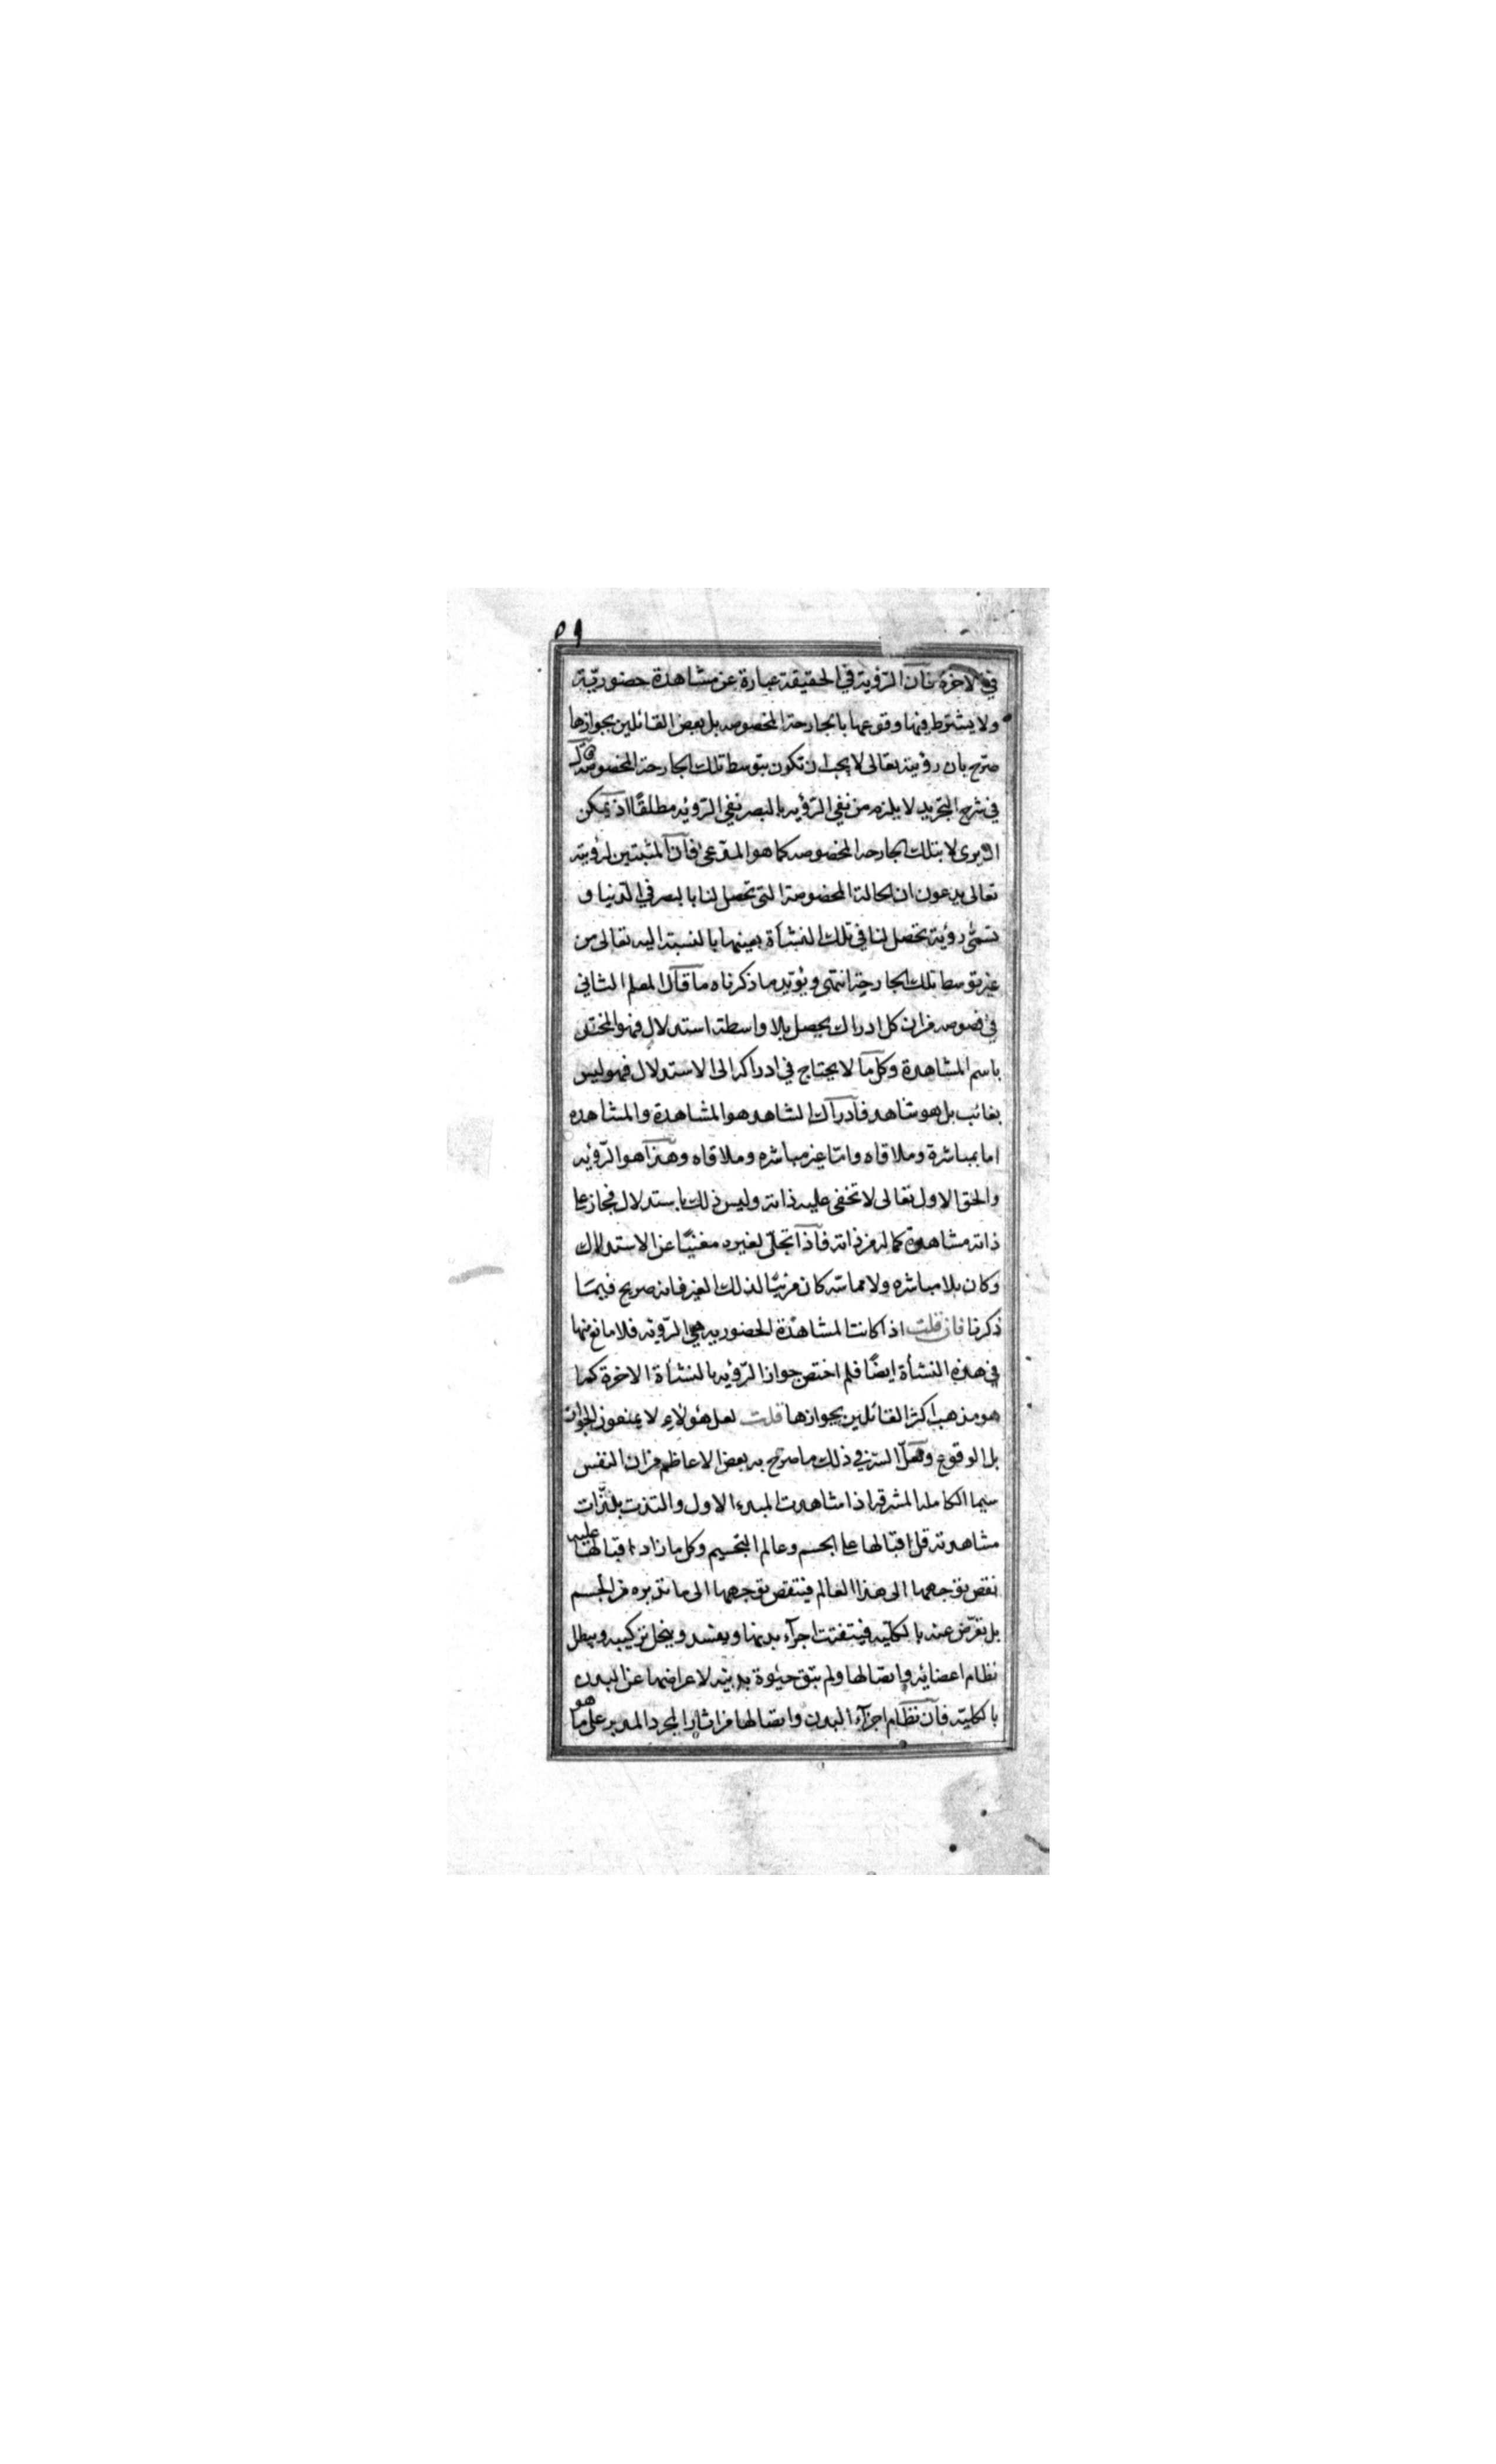 ٥٩
في الآخرة فان الرؤية في الحقيقة عبارة عن مشاهدة حضورية
ولا يشترط فيها وقوعها بالجارحة المخصوصه بل بعض القائلين بجوازها
صرّح بان رؤيته تعالى لا يجب ان تكون بتوسط تلك الجارحة المخصوصة
في شرح التجريد لا يلزم من نفي الرؤيه بالبصر نفي الرؤيه مطلقًا اذ يمكن
ان يرى لا بتلك الجارحه المخصوصه كما هو المدّعى فانّ المثبتين لرؤيته
تعالى يدعون ان الحالة المخصوصة التى تحصل لنا بالبصر في الدنيا و
تسمّى رؤية تحصل لنا في تلك النشأة بعينها بالنسبة اليه تعالى من
غير توسط تلك الجارحة انتهى ويؤيّد ما ذكرناه ما قال المعلم الثاني
في فصوصه من ان كل ادراك يحصل بلا واسطة استدلال فهو المختص
باسم المشاهدة وكل ما لا يحتاج في ادراكه الى الاستدلال فهو ليس
بغائب بل هو شاهد فادراك الشاهد هو المشاهدة والمشاهده
اما بمباشرة وملاقاه وامّا غير مباشره وملاقاه وهذا هو الرّؤيه
والحق الاول تعالى لا تخفى عليه ذاته وليس ذلك باستدلال فجاز على
ذاته مشاهدة كماله من ذاته فاذا تجلّى لغيره مغنيًا عن الاستدلال
وكان بلا مباشره ولا مماسّه كان مرئيّا لذلك الغير فانه صريح فيما
ذكرنا فان قلت اذا كانت المشاهدة الحضوريه هي الرّؤيه فلا مانع منها
في هذه النشأة ايضًا فلم اختص جواز الرّؤيه بالنشأة الاخرة كما
هو مذهب اكثر القائلين بجوازها قلت لعل هؤلاء لا يمنعون الجواز
بل الوقوع ولعلّ السرّ في ذلك ما صرّح به بعض الاعاظم من ان النفس
سيما الكامله المشرقه اذا شاهدت المبدء الاول والتذت بلذّات
مشاهدته قل اقبالها على الجسم وعالم التجسيم وكل ما زاد اقبالها عليه
نقص توجهها الى هذا العالم فينتقص توجهها الى ما تدبره من الجسم
بل تعرّض عنه بالكليّه فيتفتت اجزآء بدنها ويفسد وينحل تركيبه ويبطل
نظام اعضائه واتصالها ولم تبق حيٰوة بدنيه لاعراضها عن البدن
بالكليّه فان نظام اجزآء البدن واتصالها من اثار المجرد المدبر على ما هو